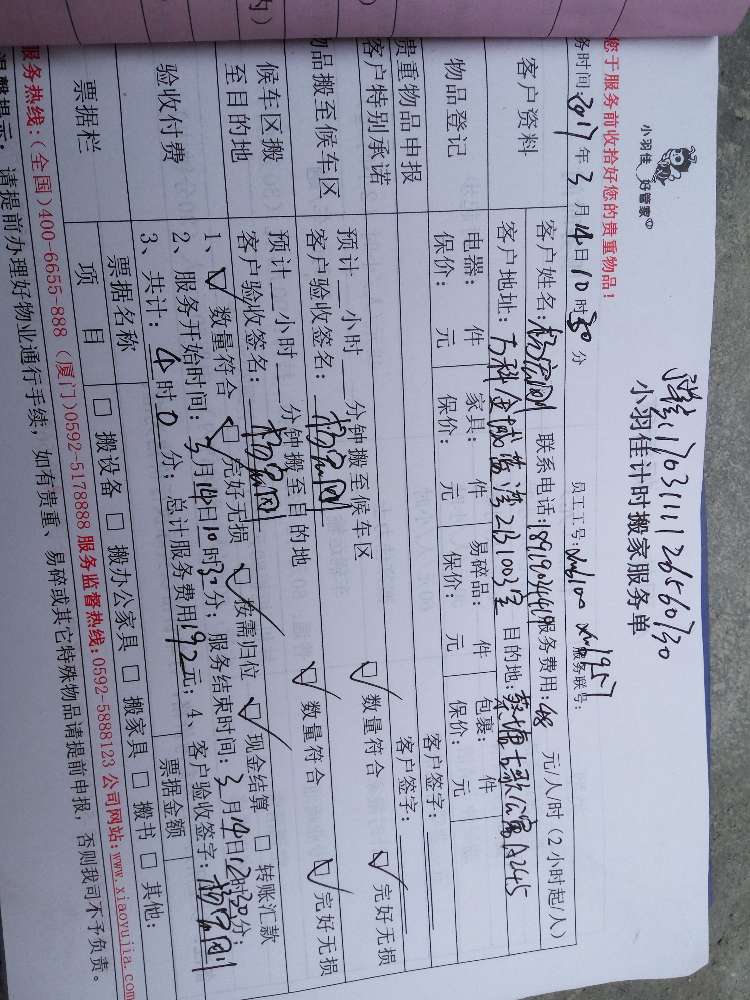 内）
小羽佳 好管家
小羽佳计时搬家服务单
您于服务前收拾好您的贵重物品！
务时间：2017年3月14日10时30分 员工工号： 服务联号：
客户资料 客户姓名： 联系电话： 服务费用：48 元/人/时（2小时起/人）
客户地址：万科金域蓝湾 目的地：蔡塘古歌公寓A245
物品登记 电器： 件 家具： 件 易碎品： 件 包裹： 件
保价： 元 保价： 元 保价： 元 保价： 元
贵重物品申报 客户签字：
客户特别承诺 客户签字：
物品搬至候车区 预计 小时 分钟搬至候车区 ☑ 数量符合 ☑ 完好无损
客户验收签名：
候车区搬至目的地 预计 小时 分钟搬至目的地 ☑ 数量符合 ☑ 完好无损
客户验收签名：
验收付费 1、☑ 数量符合 ☑ 完好无损 ☑ 按需归位 ☑ 现金结算 □ 转账汇款
2、服务开始时间：3月14日10时30分；服务结束时间：3月14日12时30分；
3、共计：4时0分；总计服务费用192元；4、客户验收签字：
票据栏 票据名称 票据金额
项 目 □ 搬设备 □ 搬办公家具 □ 搬家具 □ 搬书 □ 其他：
服务热线：（全国）400-6655-888（厦门）0592-5178888 服务监督热线：0592-5888123 公司网站：www.xiaoyujia.com
温馨提示：请提前办理好物业通行手续，如有贵重、易碎或其它特殊物品请提前申报，否则我司不予负责。